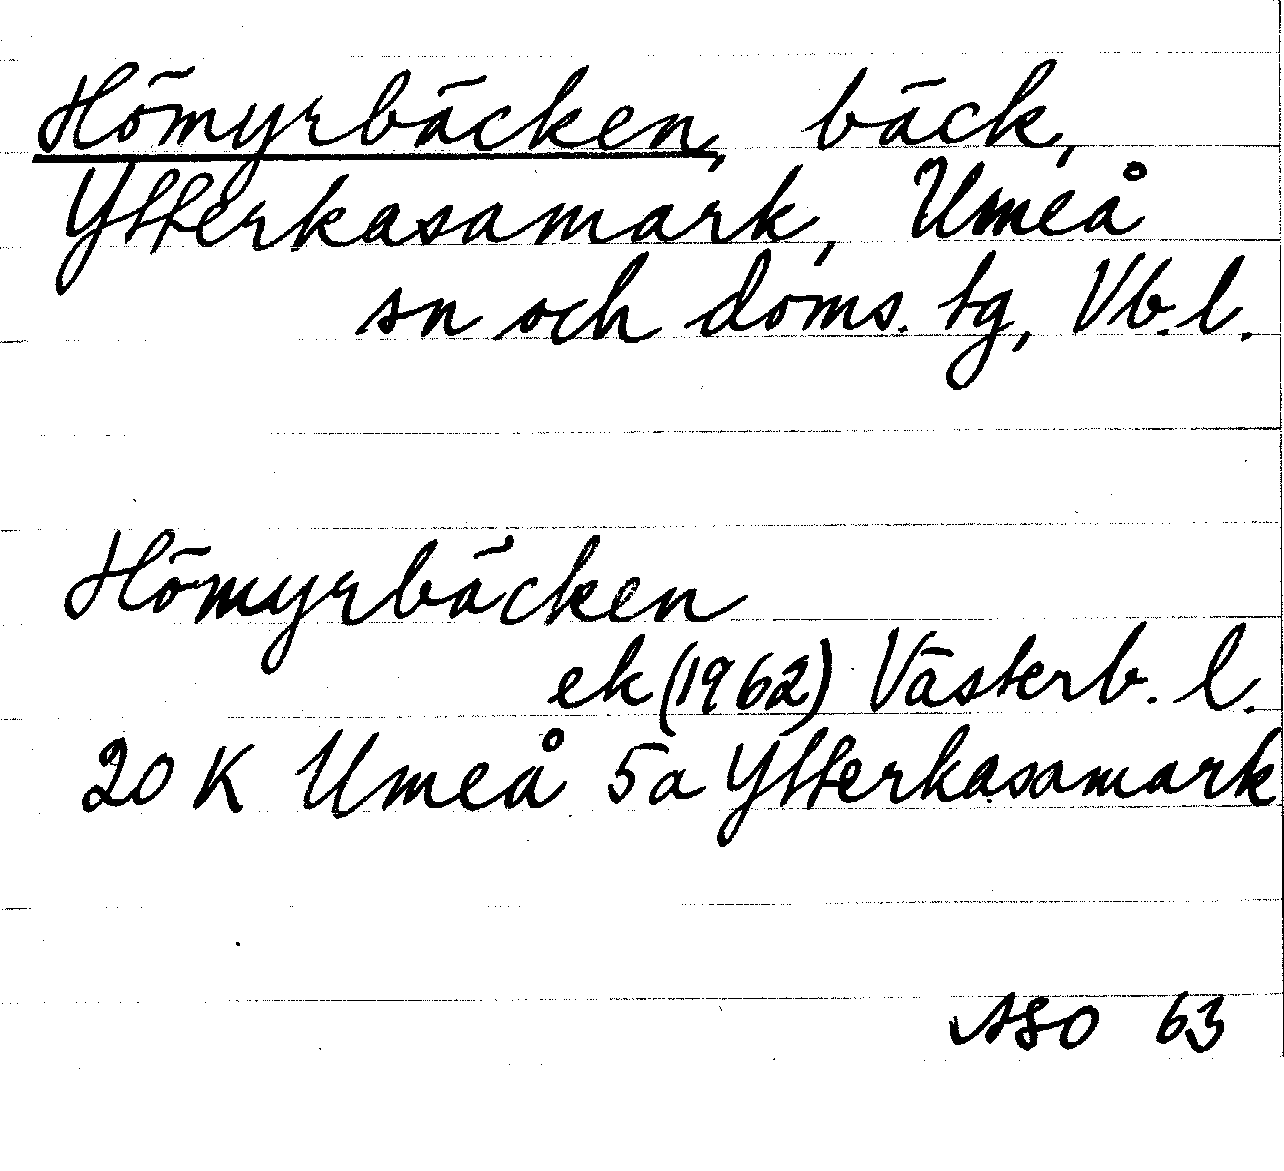 Hömyrbäcken, bäck,
Ytterkasamark, Umeå
sn och doms. tg, Vb.l.
Hömyrbäcken
ek (1962) Västerb. l.
20 K Umeå 5a Ytterkasamark
ASO 63